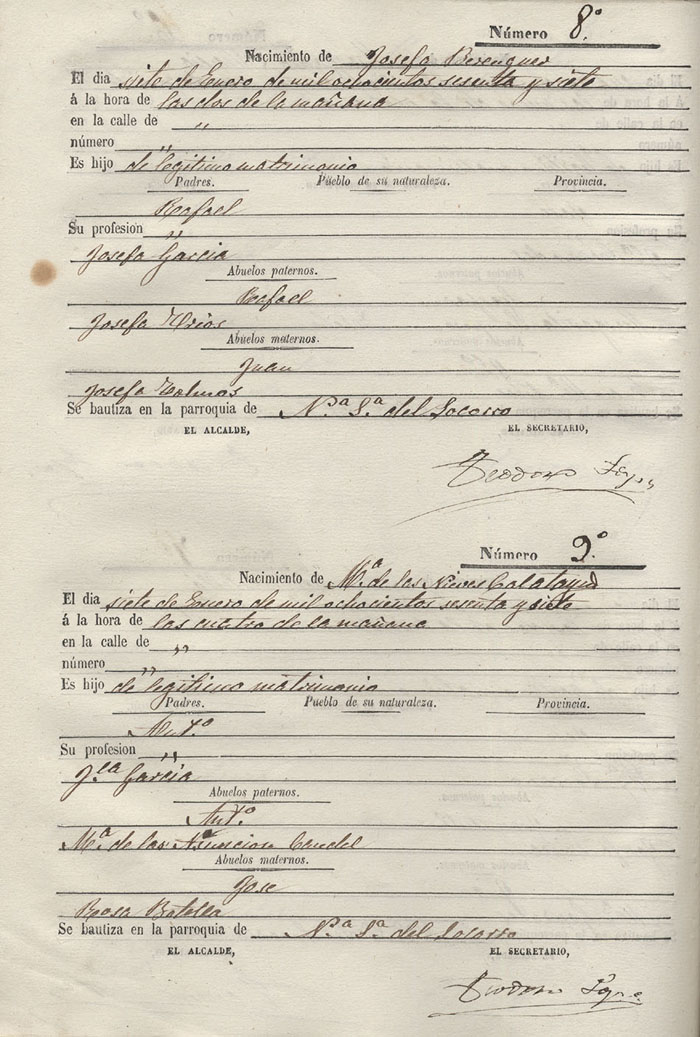 Número 8.º
Nacimiento de Josefa Berenguer
El dia siete de Enero de mil ochocientos sesenta y siete
á la hora de las dos de la mañana
en la calle de "
número "
Es hijo de legitimo matrimonio
Padres. Pueblo de su naturaleza. Provincia.
Rafael
Su profesión "
Josefa Garcia
Abuelos paternos.
Rafael
Josefa
Abuelos maternos.
Juan
Josefa
Se bautiza en la parroquia de N.ª S.ª del Socorro
EL ALCALDE, EL SECRETARIO,
Teodoro
Número 9.º
Nacimiento de M.ª de las Nieves Calatayud
El dia siete de Enero de mil ochocientos sesenta y siete
á la hora de las cuatro de la mañana
en la calle de "
número "
Es hijo de legitimo matrimonio
Padres. Pueblo de su naturaleza. Provincia.
Ant.º
Su profesion "
J.fa Garcia
Abuelos paternos.
Ant.º
M.ª de la Asuncion Candel
Abuelos maternos.
Jose
Rosa Botella
Se bautiza en la parroquia de N.ª S.ª del Socorro
EL ALCALDE, EL SECRETARIO,
Teodoro